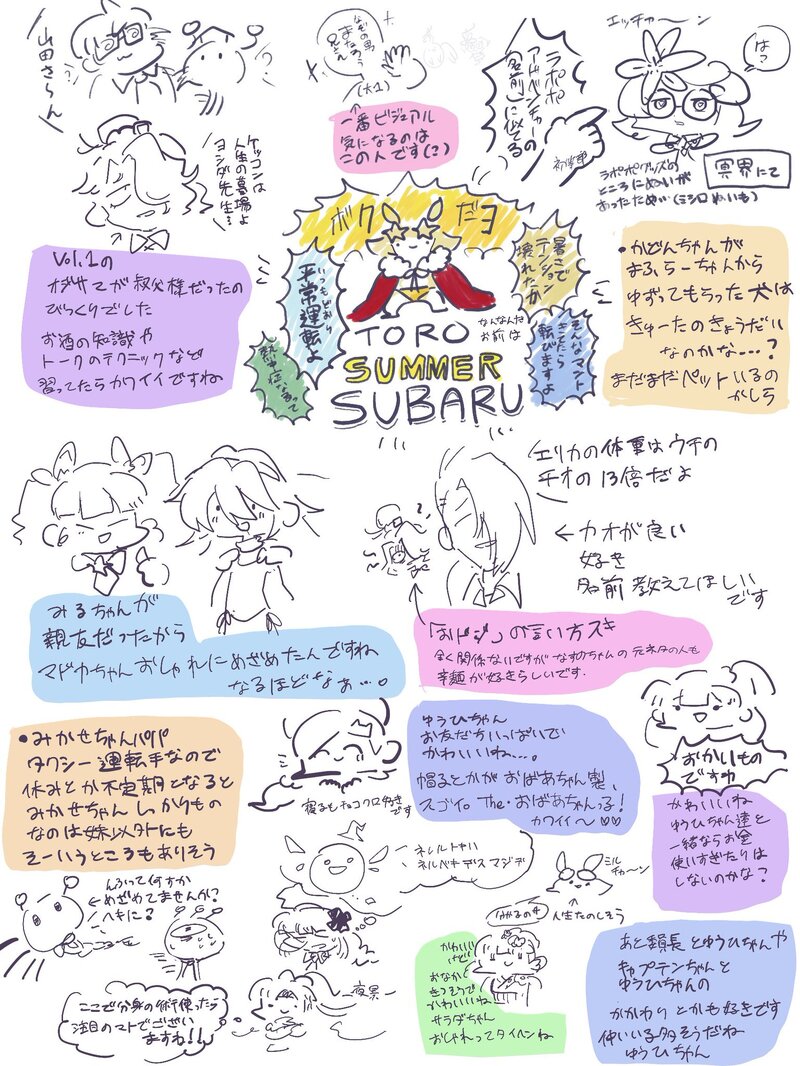 山田さらん
なぞの男
またろう
兄さん
(大1)
一番ビジュアル
気になるのは
この人です(?)
ラポポ
アドベンチャーの
「名前」に似てる
エッチャ〜ン
はっ
ラポポグッズの
ところにぬいが
あったため
冥界にて
ケッコンは
人生の墓場よ
ヨシダ先生…
Vol.1の
オジサマが叔父様だったの
びっくりでした
お酒の知識や
トークのテクニックなど
習ってたらカワイイですね
ボクだヨ
いつもどおり
平常運転よ
熱中症なるって
暑さで
テンション
壊れたか
そんなマント
きてたら
転びますよ
なんなんだ
お前は
TORO
SUMMER
SUBARU
•かどんちゃんが
まふらーちゃんから
ゆずってもらった犬は
きゅーたのきょうだい
なのかな…?
まだまだペットいるの
かしら
エリカの体重はウチの
チオの13倍だよ
←カオが良い
好き
名前教えてほしい
です
みるちゃんが
親友だったから
マドカちゃんおしゃれにめざめたんですね
なるほどなぁ…。
の言い方スキ
全く関係ないですがなすかちゃんの元ネタの人も
辛麺が好きらしいです.
•みかせちゃんパパ
タクシー運転手なので
休みとか不定期となると
みかせちゃんしっかりもの
なのは妹以外にも
そーいうところもありそう
寝る子もコクロ好き
です
ゆうひちゃん
お友だちいっぱいで
かわいいね…。
帽子とかがおばあちゃん製、
スゴイ。The・おばあちゃんっ子!
カワイイ〜♡♡
おかいもの
ですわ
かわいいね
ゆうひちゃん達と
一緒ならお金
使いすぎたりは
しないのかな?
ネレルトヤハ
ネルベキデスマジデ
ミル
チャ〜ン
人生たのしそう
んふって何すか
めざめてませんか?
ヘキに?
ここで分身の術使ったら
注目のマトでござい
ますね!!
夜景
かわいい
けど
おなかが
きつそうで
かわいいね
サラダちゃん
おしゃれってタイヘンね
あと額長とゆうひちゃんや
キャプテンちゃんと
ゆうひちゃんの
かかわりとかも好きです
仲いい子多そうだね
ゆうひちゃん